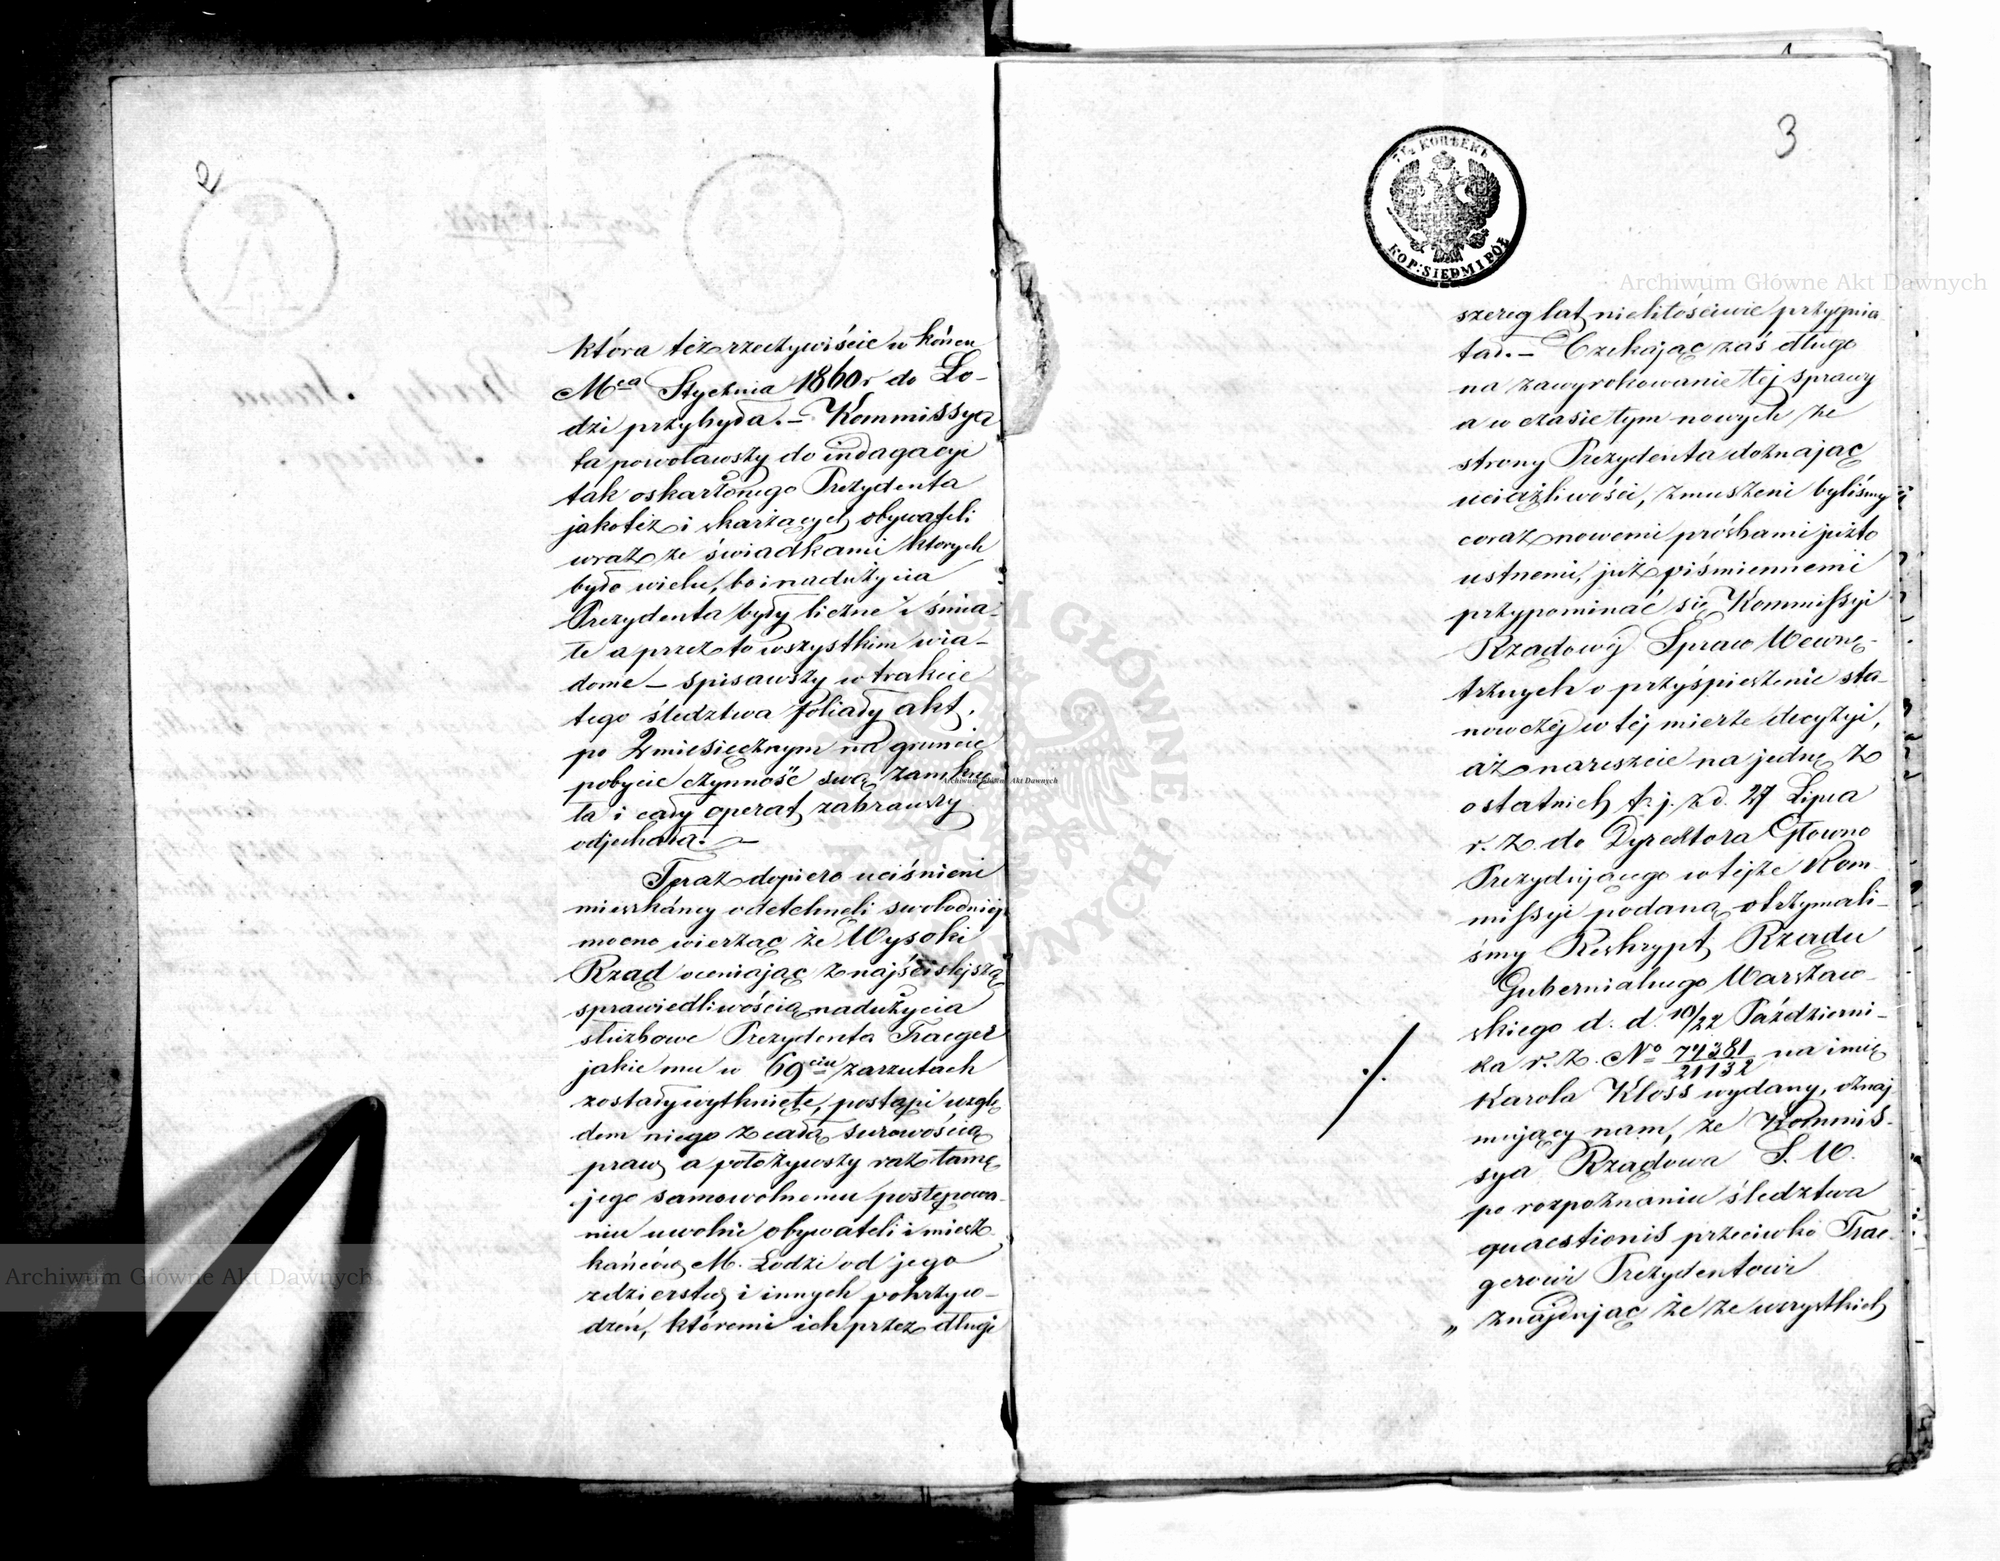 która też rzeczywiście w końcu
Mca Stycznia 1860 r do Ło-
dzi przybyła. – Kommissya
ta powoławszy do indagacyi
tak oskarżonego Prezydenta
jakoteż i skarżących obywateli
wraz ze świadkami których
było wielu, bo i nadużycia
Prezydenta były liczne i śmia-
łe a przez to wszystkim wia-
dome – spisawszy w trakcie
tego śledztwa foliały akt,
po 2 miesięcznym na gruncie
pobycie czynność swą zamknę
ła i cały operat zabrawszy
odjechała. –
Teraz dopiero uciśnieni
mieszkańcy odetchneli swobodniej
mocno wierząc że Wysoki
Rząd oceniając z najściślejszą
sprawiedliwością nadużycia
służbowe Prezydenta Traeger
jakie mu w 69ciu zarzutach
zostały wytknięte, postąpi wzglę
dem niego z całą surowością
praw, a położywszy raz tamę
jego samowolnemu postępowa-
niu uwolni obywateli i miesz
kańców M. Łodzi od jego
zdzierstw i innych pokrzyw-
dzeń, któremi ich przez długi
3
7½ КОПѢЕКЪ
KOP: SIEDM I PÓŁ
szereg lat nielitościwie przygnia
tał. – Czekając zaś długo
na zawyrokowanie tej sprawy
a w czasie tym nowych ze
strony Prezydenta doznając
uciążliwości, zmuszeni byliśmy
coraz nowemi prośbami już to
ustnemi, już piśmiennemi
przypominać się Kommissyi
Rządowej Spraw Wewnę-
trznych o przyśpieszenie sta-
nowczej w tej mierze decyzyi,
aż nareszcie na jednę z
ostatnich t. j. z d. 27 Lipca
r. z. do Dyrektora Głowno
Prezydującego w tejże Kom-
missyi podaną otrzymali-
śmy Reskrypt Rządu
Gubernialnego Warszaw-
skiego d. d. 10/22 Październi-
ka r. z. No 74381/21132 na imię
Karola Kloss wydany, oznaj
mujący nam, że Kommis-
sya Rządowa S. W.
po rozpoznaniu śledztwa
quaestionis przeciwko Trae-
gerowi Prezydentowi
„ znajdując że ze wszystkich
Archiwum Główne Akt Dawnych
Archiwum Główne Akt Dawnych
Archiwum Główne Akt Dawnych